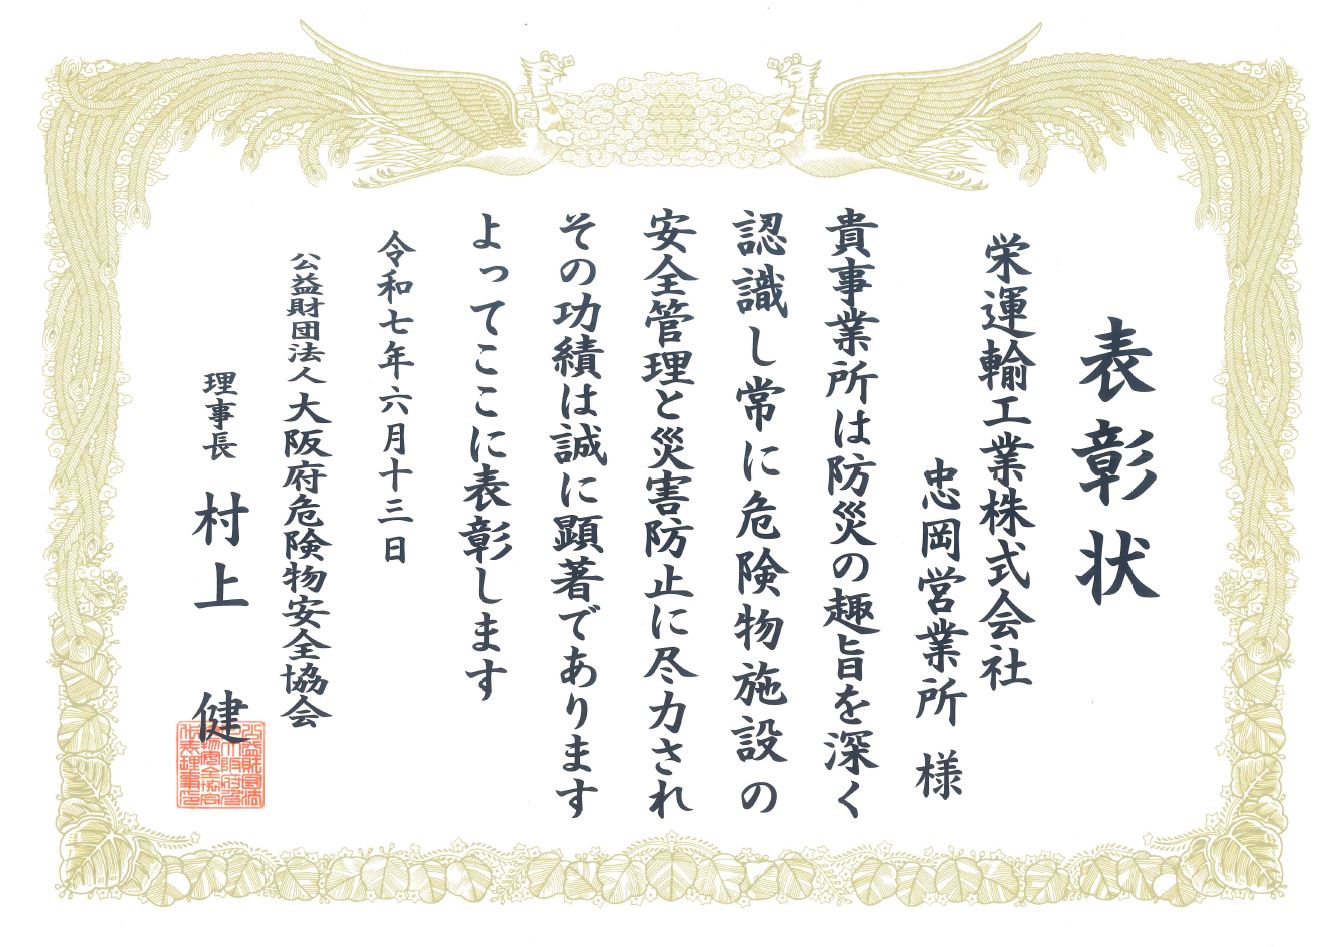 表彰状
栄運輸工業株式会社
忠岡営業所 様
貴事業所は防災の趣旨を深く
認識し常に危険物施設の
安全管理と災害防止に尽力され
その功績は誠に顕著であります
よってここに表彰します
令和七年六月十三日
公益財団法人大阪府危険物安全協会
理事長 村上 健